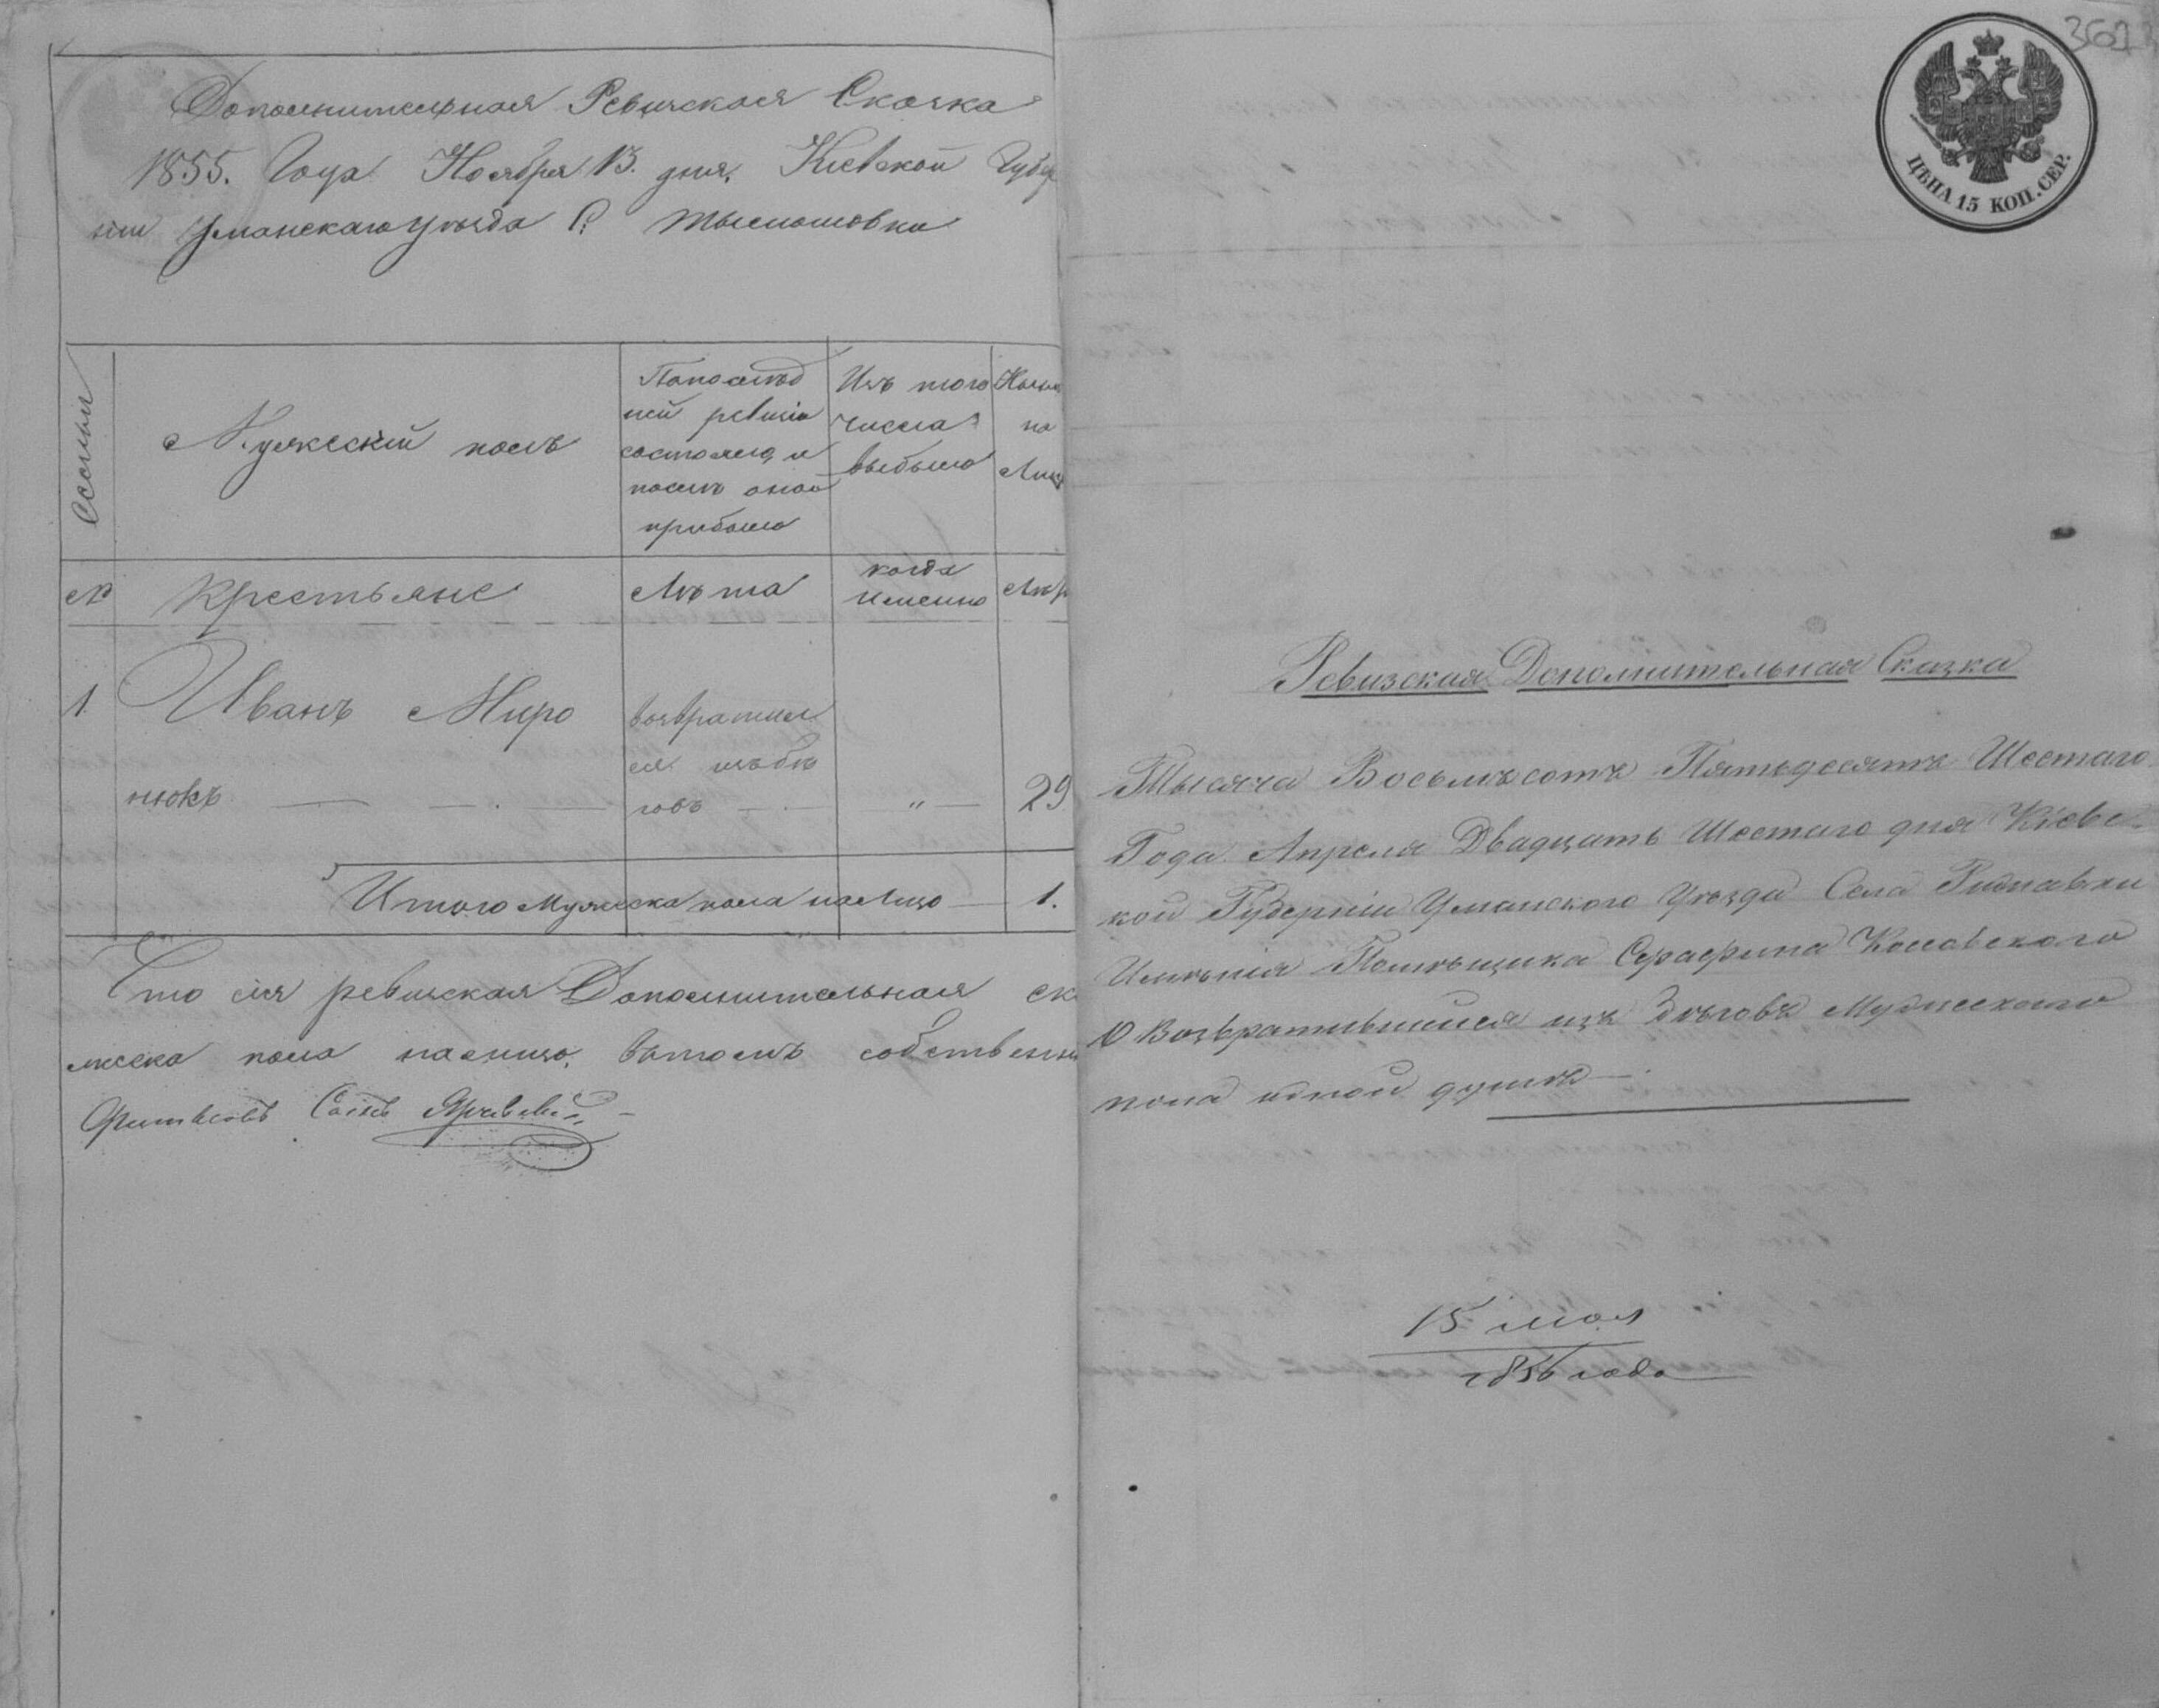 Дополнительная Ревизская Сказка
1855. Года Ноября 13. дня, Кіевской Губер
ніи Уманскаго уѣзда С.
Семьи
Мужескій полъ
Попослѣд
ней ревизіи
состояло, и
послѣ оной
прибыло
Изъ того
числа
выбыло
Нынѣ
на
Лицо
№
Крестьяне
Лѣта
когда
именно
Лѣт
1
Иванъ Миро
нюкъ
возвратил
ся изъбѣ
говъ
"
29
Итого Мужеска пола налицо 1.
Что сія ревизская Дополнительная ск
жеска пола налицо, втомъ собственно
362
ЦѢНА 15 КОП. СЕР.
Ревизская Дополнительная Сказка
Тысяча Восемьсотъ Пятьдесятъ Шестаго
Года Апреля Двадцать Шестаго дня Кіевс-
кой Губерніи Уманского Уѣзда Села
Имѣнія Помѣщика Серафина
О Возвратившейся изъ Бѣговъ Мужескаго
пола одной душѣ
15 мая
1856 года